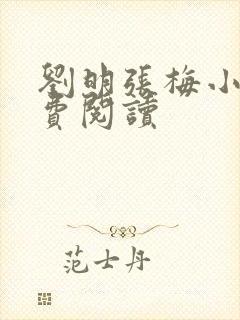 劉明張梅小
費閱讀
范士丹